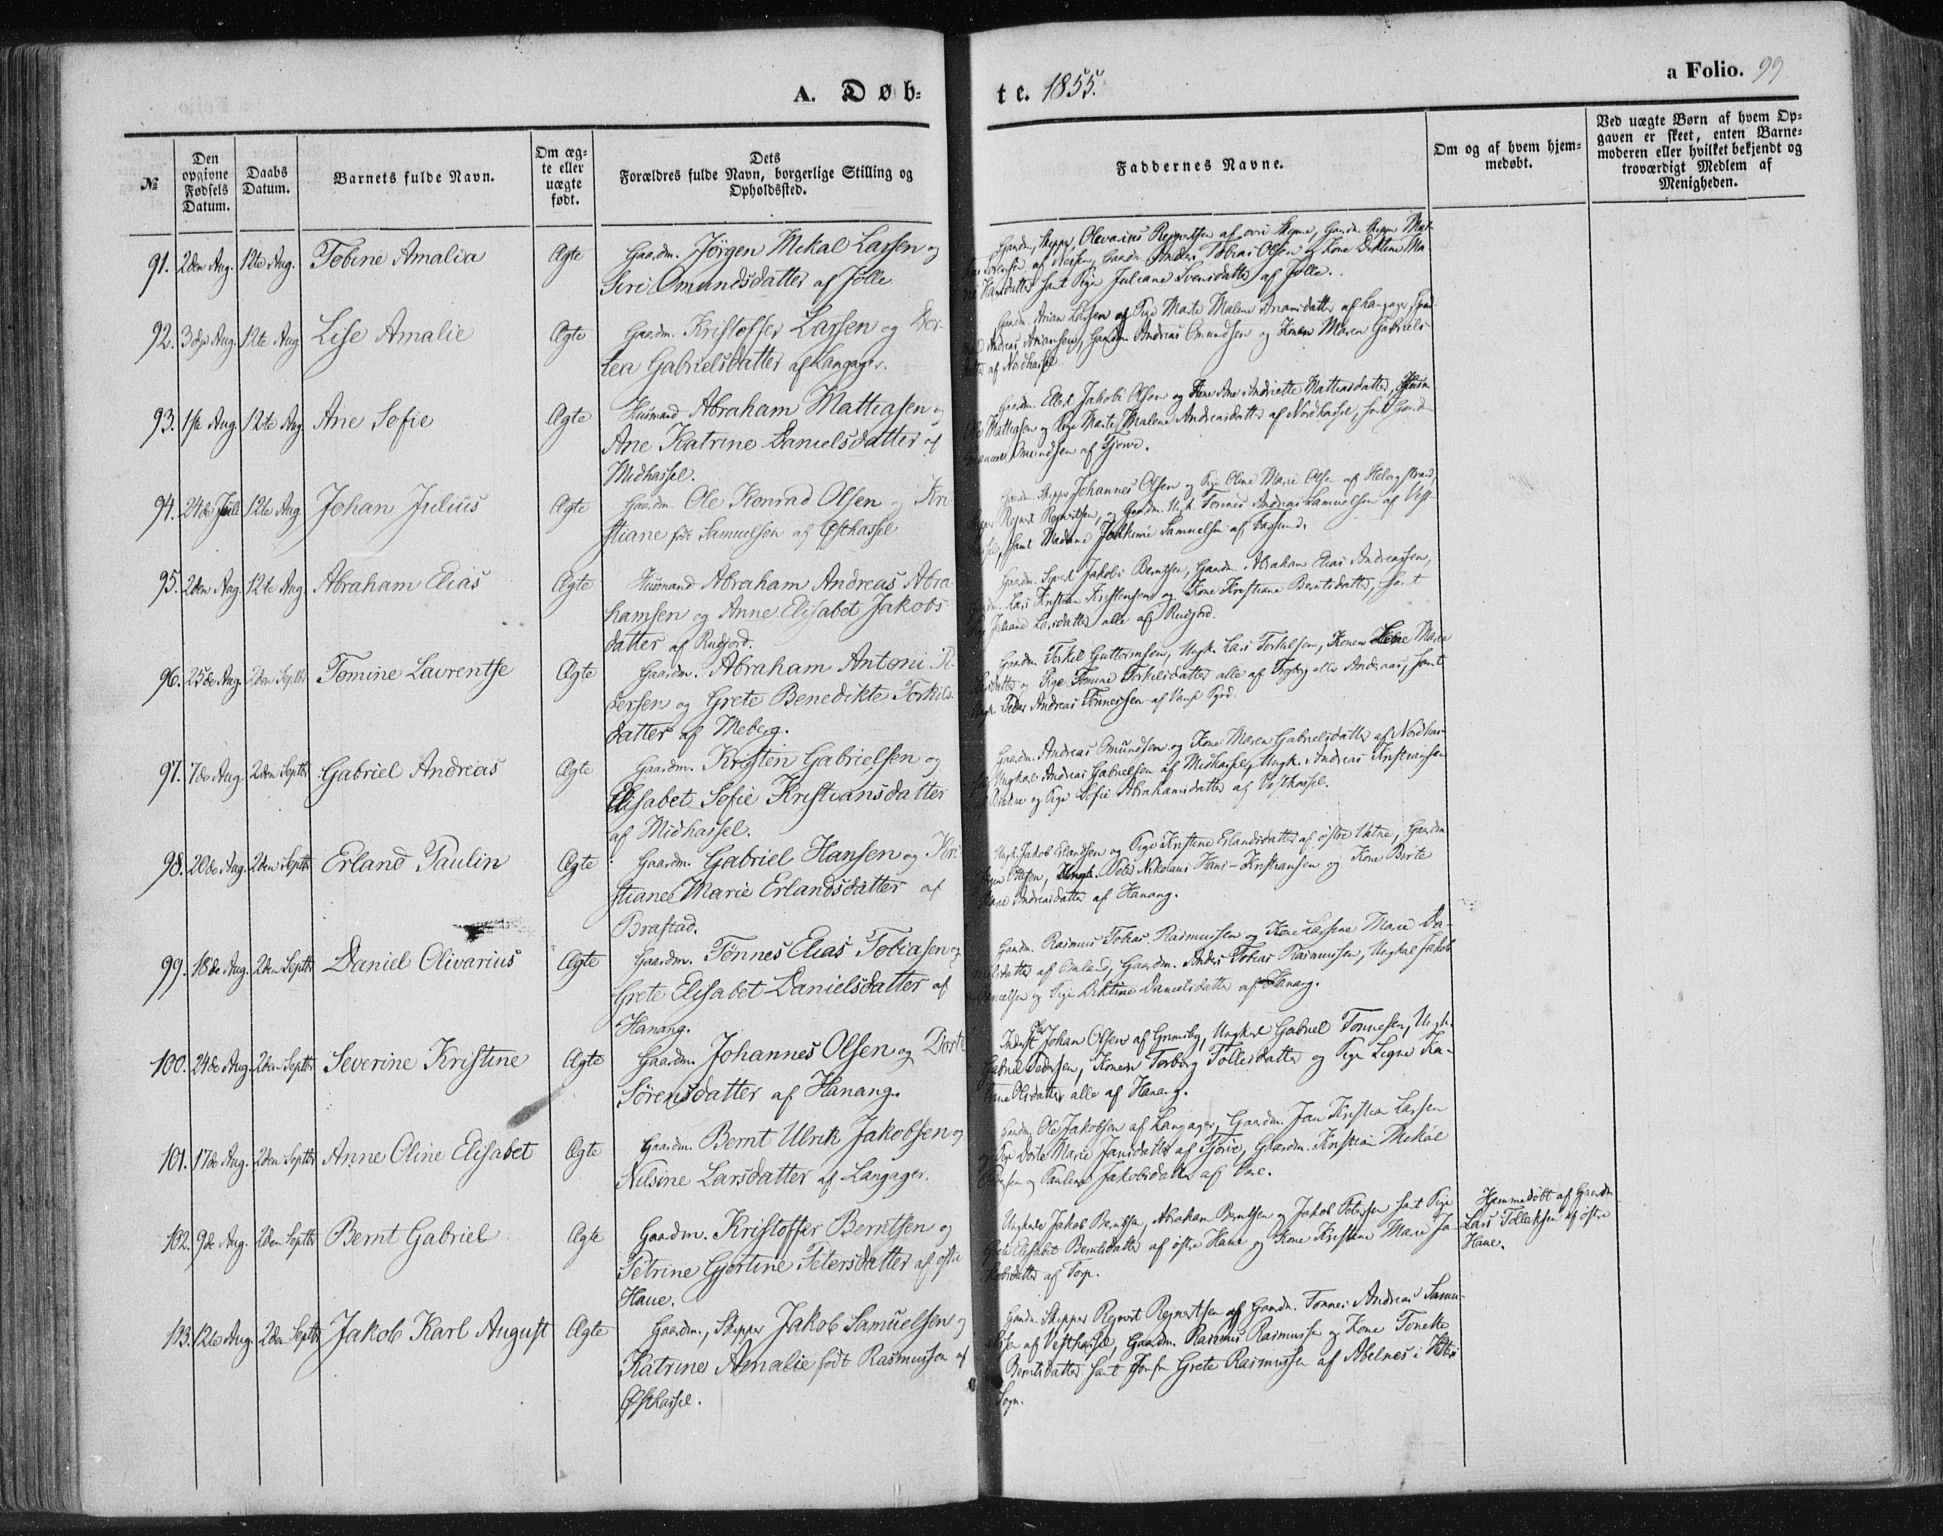 A. Døb-
te. 1855.
a Folio. 99
№
Den opgivne Fødsels Datum.
Daabs Datum.
Barnets fulde Navn.
Om ægte eller uægte født.
Dets Forældres fulde Navn, borgerlige Stilling og Opholdssted.
Faddernes Navne.
Om og af hvem hjemmedøbt.
Ved uægte Børn af hvem Opgaven er skeet, enten Barnemoderen eller hvilket bekjendt og troværdigt Medlem af Menigheden.
91. 2den Aug. 12te Aug. Tobine Amalia Ægte
Gaardm. Jörgen Mekal Larsen og
Siri Omundsdatter af Jölle
Gaardm, Skipper, Olevarius Reinertsen af
Gaardm. Anders Tobias Olsen og Kone
samt Pige Juliane Svensdatter af Jölle.
92. 3die Aug. 12te Aug. Lise Amalie Ægte
Gaardm. Kristoffer Larsen og Dor-
tea Gabrielsdatter af Langager.
Gaardm. Arian Larsen og Pige Marte Malene Ariansdatter af Langager,
Andreas Ariansen, Gaardm Andreas Omundsen og Konen Maren Gabriels-
datter af Nordhassel
93. 1ste Aug. 12te Aug. Ane Sofie Ægte
Husmand Abraham Mattiasen og
Ane Katrine Danielsdatter af
Midhassel.
Gaardm. Ellert Jakob Olsen og Kone Ane Andriette Mattiasdatter,
Ole Mattiasen og Pige Marte Malene Andreasdatter af Nordhassel, samt Gaardm
Omundsen af Tjørve.
94. 24de Juli 12te Aug Johan Julius Ægte
Gaardm. Ole Konrad Olsen og Kri-
stiane født Samuelsen af Østhassel
Gaardm. Skipper Johannes Olsen og Pige Oline Marie Olsen af Helvigstrand,
Skipper Reinert Reinertsen, og Gaardm. Ungk. Tonnes Andreas Samuelsen af Vest-
hassel, samt Madame Joakime Samuelsen af Farsund.
95. 2den Aug. 12te Aug Abraham Elias Ægte
Husmand Abraham Andreas Abra-
hamsen og Anne Elisabet Jakobs-
datter af Rudjord.
Gaardm. Sivert Jakob Berntsen, Gaardm Abraham Elias Andreassen,
Gaardm. Lars Kristian Kristensen og Kone Kristiane Berntsdatter, samt
Pige Juliane Larsdatter alle af Rudjord.
96. 25de Aug. 2den Septbr Tomine Lavrentse Ægte
Gaardm. Abraham Antoni Pe-
dersen og Grete Benedikte Torkils-
datter af Meberg.
Gaardm. Torkel Guttormsen, Ungk. Lars Torkelsen, Konen Marie
og Pige Tomine Torkelsdatter alle af samt
Ungk. Peder Andreas Tönnessen af Vanse
97. 7de Aug 2den Septbr Gabriel Andreas Ægte
Gaardm. Kristen Gabrielsen og
Elisabet Sofie Kristiansdatter
af Midhassel.
Gaardm. Andreas Omundsen og Kone Maren Gabrielsdatter af Nordhas-
sel, Ungkal Andreas Gabrielsen af Midhassel, Ungk. Andreas Kristiansen
og Pige Sofie Abrahamsdatter af Vesthassel.
98. 20de Aug. 2den Septbr Erland Paulin Ægte
Gaardm. Gabriel Hansen og Kri-
stiane Marie Erlandsdatter af
Brastad.
Ungk. Jakob Erlandsen og Pige Kristine Erlandsdatter af østre Vatne, Gaardm
Ungk. Peder Nikolaus Hans-Kristiansen og Kone Berte
Marie Andreasdatter af Hanang.
99. 18de Aug. 2den Septbr Daniel Olivarius Ægte
Gaardm. Tønnes Elias Tobiasen og
Grete Elisabet Danielsdatter af
Hanang.
Gaardm. Rasmus Tobias Rasmussen og Kone Lassene Marie Da-
nielsdatter af Omland, Gaardm. Anders Tobias Rasmussen, Ungkal Jakob
Danielsen og Pige Dektine Danielsdatter af Hanang.
100. 24de Aug. 2den Septbr Severine Kristine Ægte
Gaardm. Johannes Olsen og Dorte
Sörensdatter af Hanang.
Inderst Johan Olsen af Grimsby, Ungkal Gabriel Tonnesen, Ungk.
Gabriel Pedersen, Konen Torborg Tollisdatter og Pige Signe Ka-
trine Olsdatter alle af Hanang.
101. 17de Aug. 2den Septbr Anne Oline Elisabet Ægte
Gaardm. Bernt Ulrik Jakobsen og
Nilsine Larsdatter af Langager.
Gaardm. Ole Jakobsen af Langager, Gaardm. Jan Kristian Larsen
og Dorte Marie Jansdatter af Tjørve, Gaardm. Kristian Mekal
og Pauline Jakobsdatter af Vere.
102. 9de Aug. 2den Septbr Bernt Gabriel Ægte
Gaardm. Kristoffer Berntsen og
Petrine Gjertine Petersdatter af østre
Haue.
Ungkarle Jakob Berntsen, Abraham Berntsen og Jakob Petersen samt Pige
Grete Elisabet Berntsdatter af østre Haue og Kone Kristine Marie Ja-
kobsdatter af Torp.
Hjemmedöbt af Gaardm
Lars Tollaksen af östre
Haue.
103. 12te Aug. 2den Septbr Jakob Karl August Ægte
Gaardm., Skipper Jakob Samuelsen og
Katrine Amalie født Rasmussen af
Østhassel.
Gaardm. Skipper Reinert Reinertsen og Gaardm. Tonnes Andreas Samu-
elsen af Vesthassel, Gaardm. Rasmus Rasmussen og Kone Tonette
Berntsdatter samt Jomfr Grete Rasmussen af Abelnes i
Sogn.